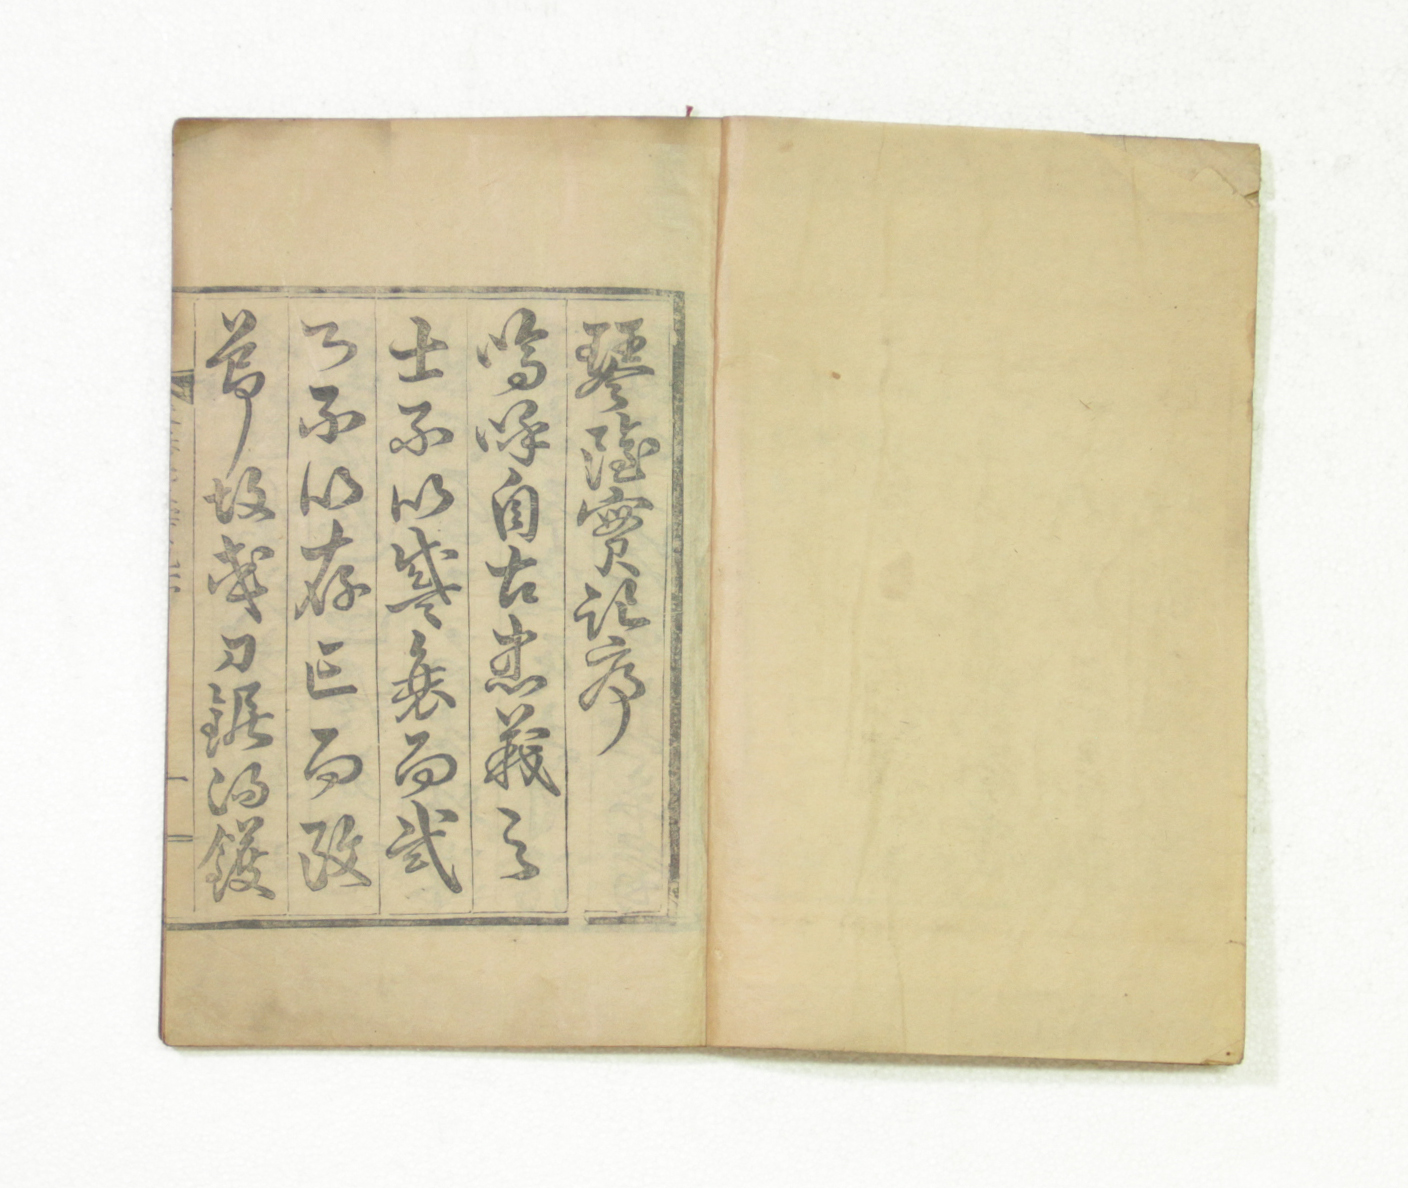 琴實記序
嗚呼自古忠義之
士不以盛衰而貳
不以存亡而改
節故刀鋸湯鑊